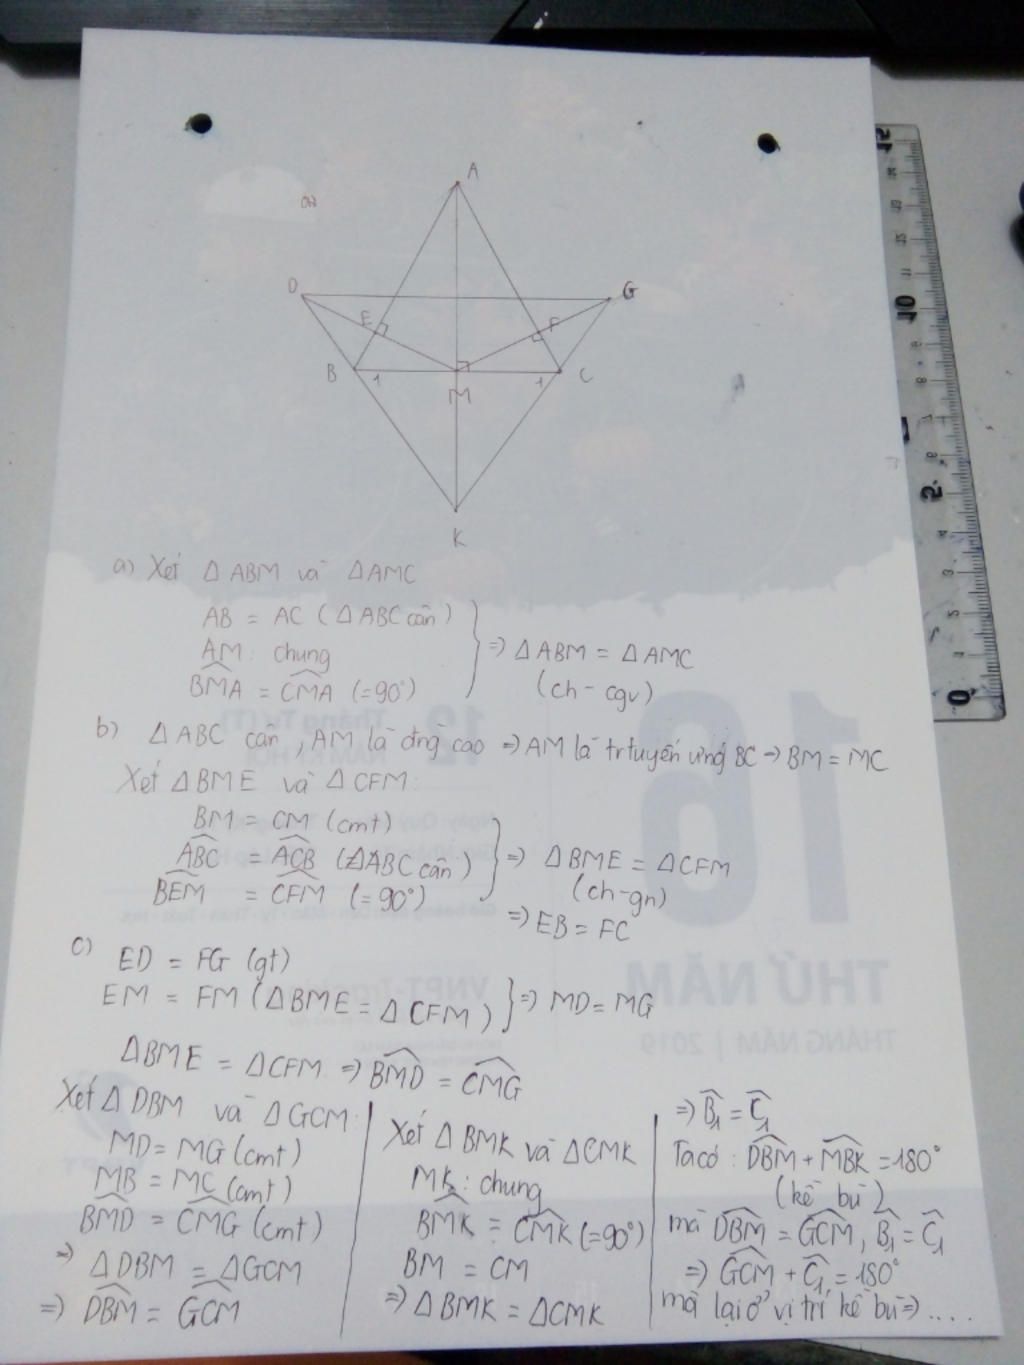 A
D
G
E
F
B
1
M
1
C
K
a) Xét Δ ABM và ΔAMC
AB = AC (ΔABC cân)
AM : chung
BMA = CMA (=90°)
⇒ ΔABM = ΔAMC
(ch - cgv)
b) ΔABC cân, AM là đng cao ⇒ AM là trtuyến ứng BC → BM = MC
Xét ΔBME và ΔCFM:
BM = CM (cmt)
ABC = ACB (ΔABC cân)
BEM = CFM (=90°)
⇒ ΔBME = ΔCFM
(ch-gn)
⇒ EB = FC
c) ED = FG (gt)
EM = FM (ΔBME = ΔCFM)
⇒ MD = MG
ΔBME = ΔCFM ⇒ BMD = CMG
Xét Δ DBM và ΔGCM:
MD = MG (cmt)
MB = MC (cmt)
BMD = CMG (cmt)
⇒ ΔDBM = ΔGCM
⇒ DBM = GCM
Xét Δ BMK và ΔCMK
MK : chung
BMK = CMK (=90°)
BM = CM
⇒ ΔBMK = ΔCMK
⇒ B1 = C1
Ta có : DBM + MBK = 180°
(kề bù)
mà DBM = GCM, B1 = C1
⇒ GCM + C1 = 180°
mà lại ở vị trí kề bù ⇒ ....
12
10
2
0
16
12
Tháng Tư (T)
NĂM KỈ HỢI
THỨ NĂM
THÁNG NĂM | 2019